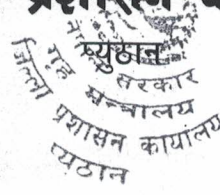 प्युठान
सरकार
गृह मन्त्रालय
जिल्ला प्रशासन कार्यालय
प्युठान